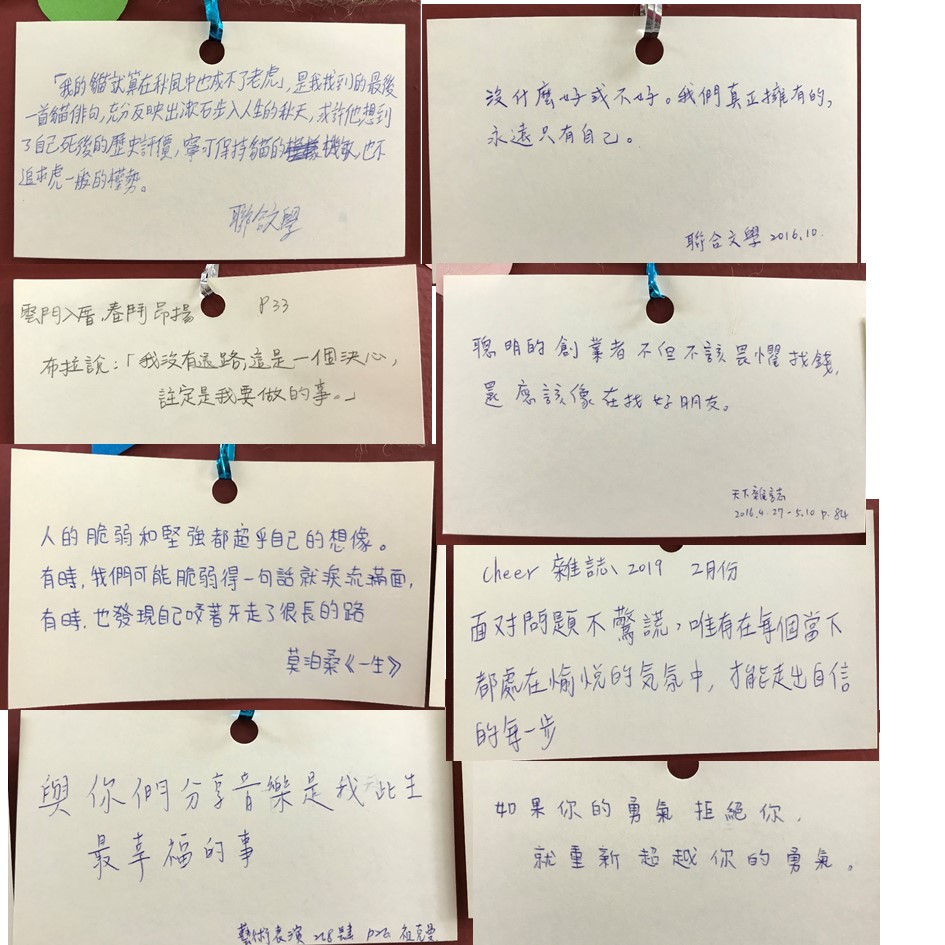 「我的貓就算在秋風中也成不了老虎」,是我找到的最後
一首貓俳句,充分反映出漱石步入人生的秋天,或許他想到
了自己死後的歷史評價,寧可保持貓的機敏,也不
追求虎一般的權勢。
聯合文學
沒什麼好或不好。我們真正擁有的,
永遠只有自己。
聯合文學 2016.10.
雲門入厝.春鬥昂揚 P33
布拉說:「我沒有退路,這是一個決心,
註定是我要做的事。」
聰明的創業者不但不該畏懼找錢,
還應該像在找好朋友。
天下雜誌
2016.4.27-5.10 p.84
人的脆弱和堅強都超乎自己的想像。
有時,我們可能脆弱得一句話就淚流滿面,
有時.也發現自己咬著牙走了很長的路
莫泊桑《一生》
Cheer 雜誌、2019 2月份
面对問題不驚謊,唯有在每個當下
都處在愉悅的気氛中,才能走出自信
的每一步
與你們分享音樂是我此生
最幸福的事
藝術表演 p26 祖克曼
如果你的勇氣拒絕你,
就重新超越你的勇氣。